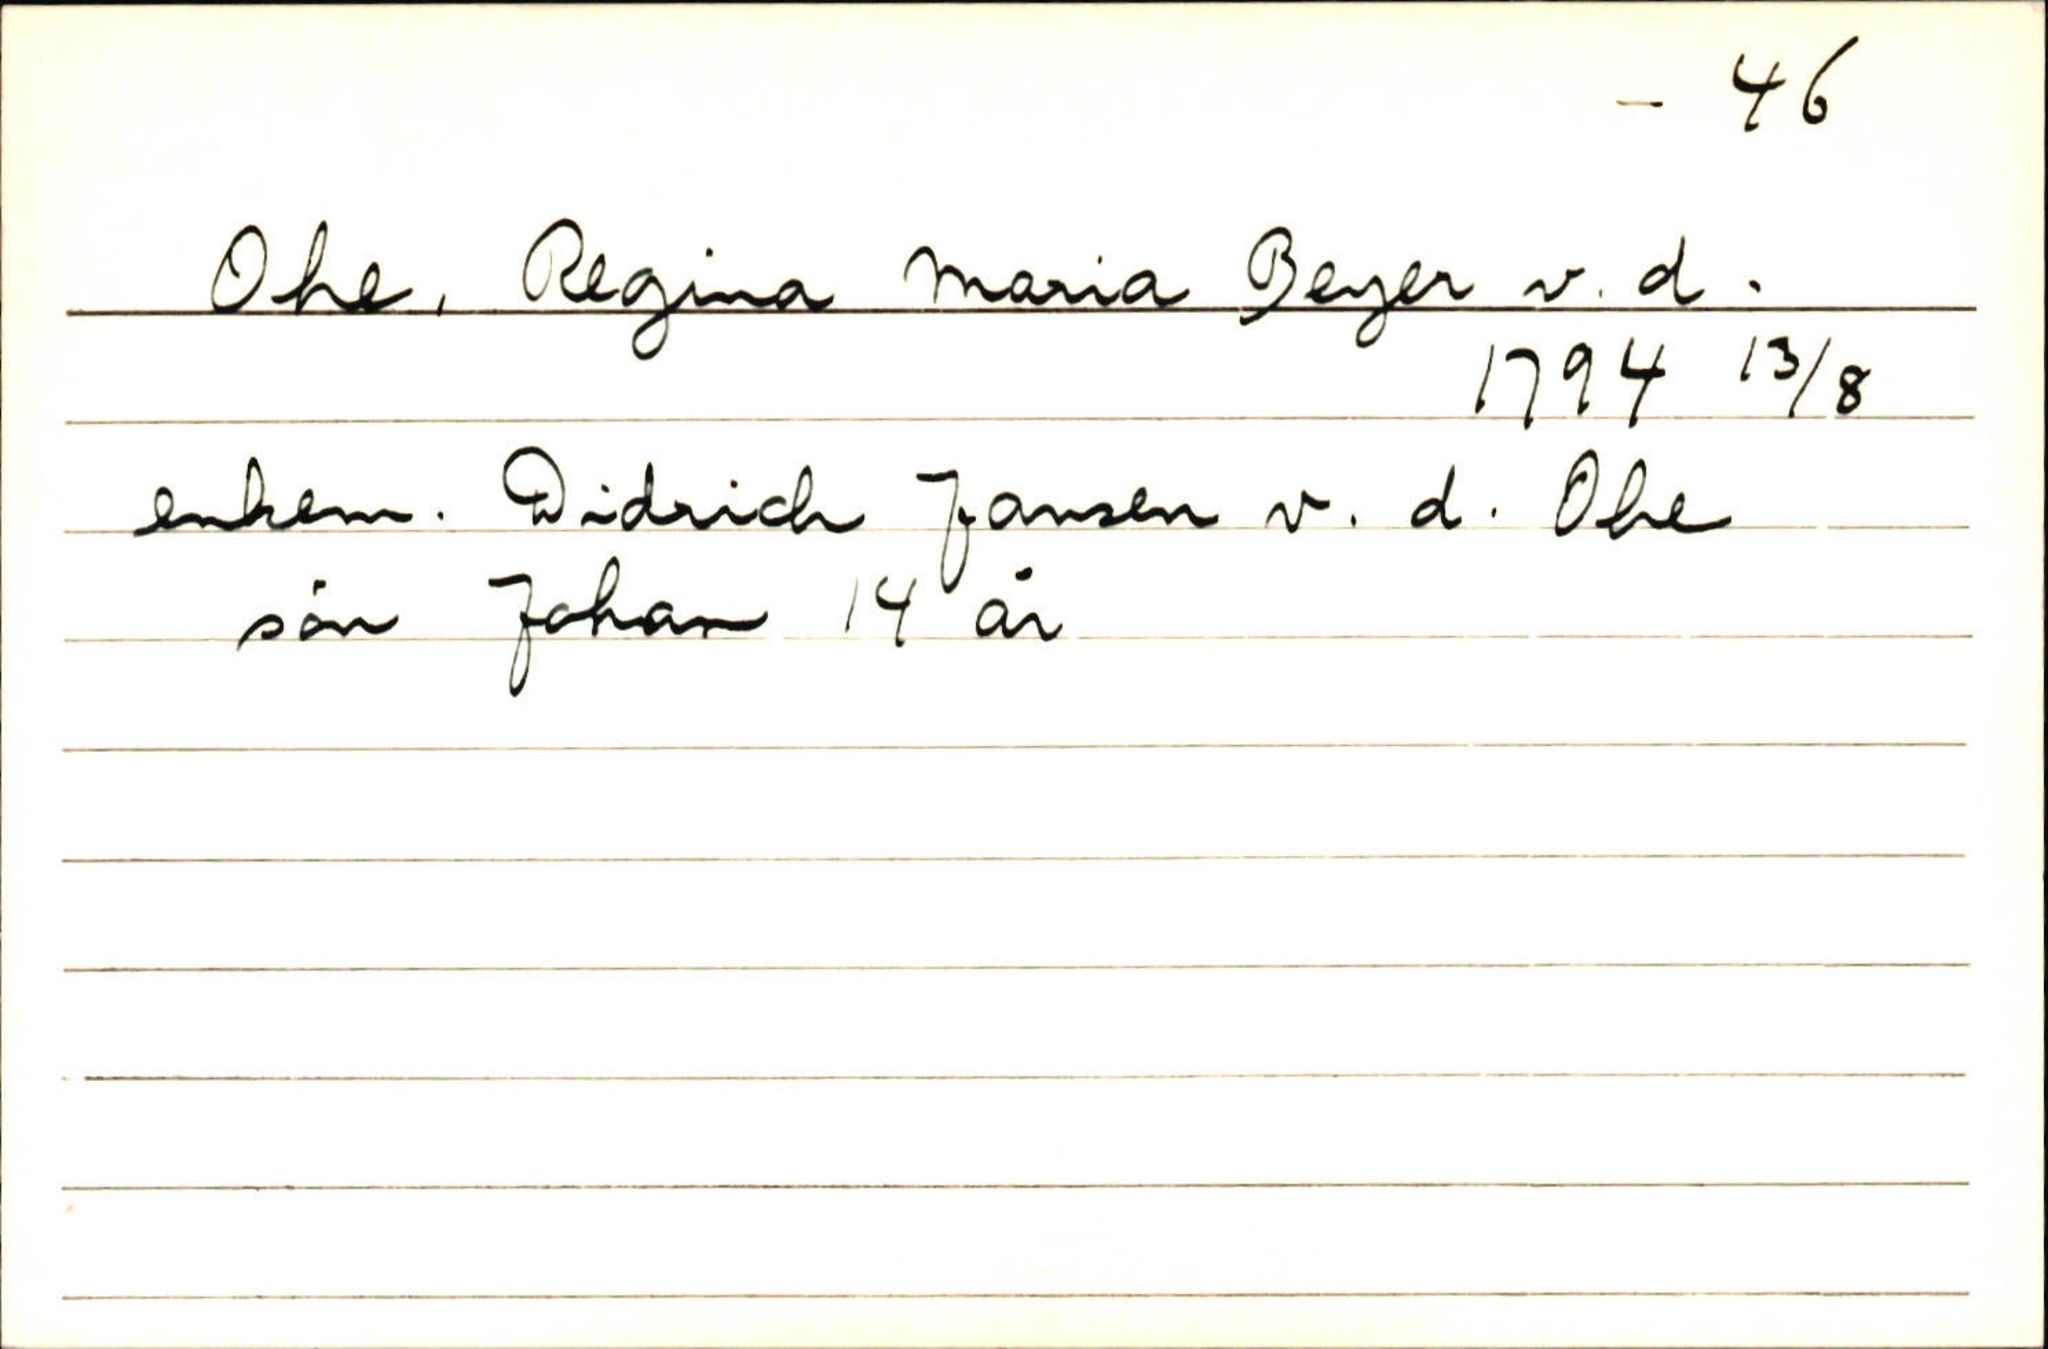 - 46
Ohe, Regina Maria Beyer v. d.
1794 13/8
enkem. Didrich Jansen v. d. Ohe
søn Johan 14 år